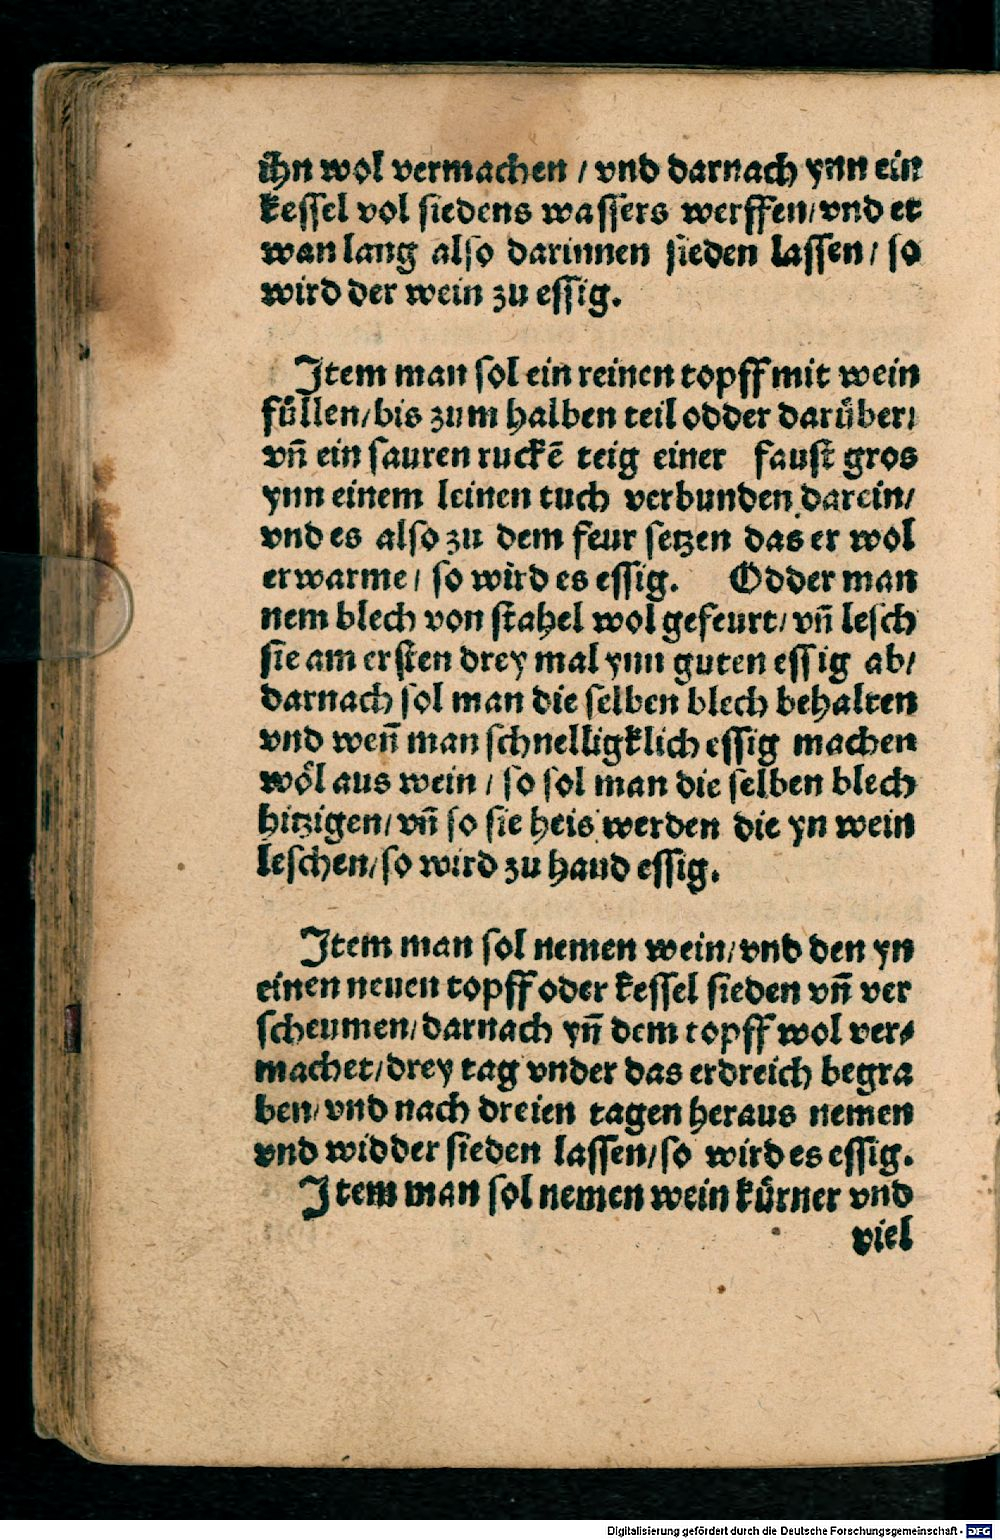 ihn wol vermachen / vnd darnach ynn ein
kessel vol siedens wassers werffen/vnd et
wan lang also darinnen sieden lassen / so
wird der wein zu essig.
Item man sol ein reinen topff mit wein
füllen/bis zum halben teil odder darüber/
vn̄ ein sauren ruckē teig einer faust gros
ynn einem leinen tuch verbunden darein/
vnd es also zu dem feur setzen das er wol
erwarme / so wird es essig. Odder man
nem blech von stahel wol gefeurt/ vn̄ lesch
sie am ersten drey mal ynn guten essig ab/
darnach sol man die selben blech behalten
vnd wen̄ man schnelligklich essig machen
wöl aus wein / so sol man die selben blech
hitzigen/ vn̄ so sie heis werden die yn wein
leschen/so wird zu hand essig.
Item man sol nemen wein/vnd den yn
einen neuen topff oder kessel sieden vn̄ ver
scheumen/darnach yn̄ dem topff wol ver⸗
machet/drey tag vnder das erdreich begra
ben/ vnd nach dreien tagen heraus nemen
vnd widder sieden lassen/so wird es essig.
Item man sol nemen wein kürner vnd
viel
Digitalisierung gefördert durch die Deutsche Forschungsgemeinschaft - DFG